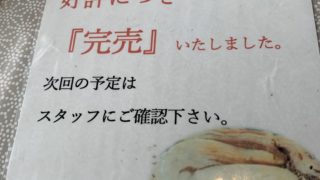 好評につき
『完売』いたしました。
次回の予定は
スタッフにご確認下さい。